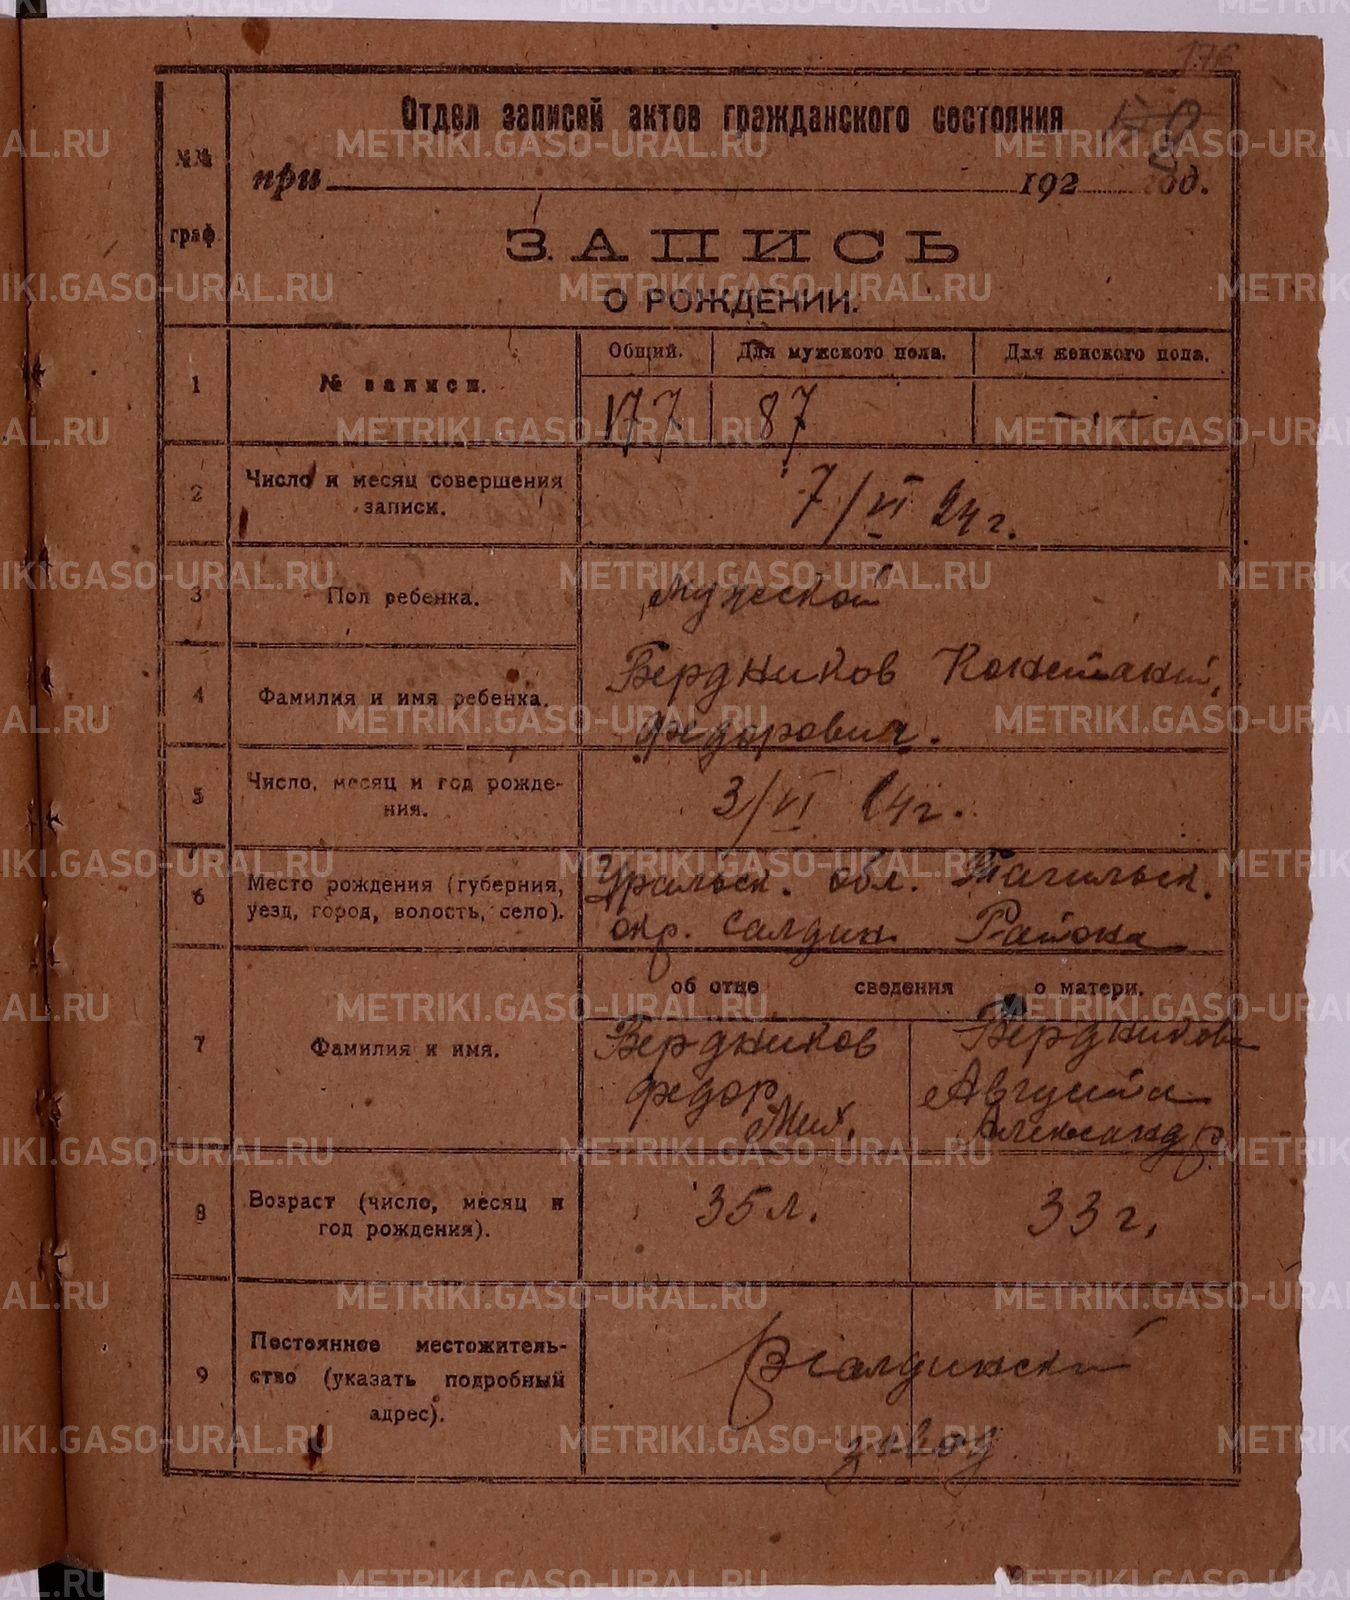 176
Отдел записей актов гражданского состояния
№№
граф
при 192 год.
ЗАПИСЬ
О РОЖДЕНИИ.
Общий. Для мужского пола. Для женского пола.
1 № записи. 177 87
2 Число и месяц совершения
записи.
7/VI 24 г.
3 Пол ребенка. Мужской
4 Фамилия и имя ребенка.
Бердников Констант.
Федорович.
5 Число, месяц и год рожде-
ния.
3/VI 24 г.
6 Место рождения (губерния,
уезд, город, волость, село).
Уральск. обл. Тагильск.
окр. Салдин. Района
об отце сведения о матери.
7 Фамилия и имя.
Бердников
Федор
Мих.
Бердникова
Августа
Александр.
8 Возраст (число, месяц и
год рождения).
35 л. 33 г.
9 Постоянное местожитель-
ство (указать подробный
адрес).
В Салдинский
завод
METRIKI.GASO-URAL.RU